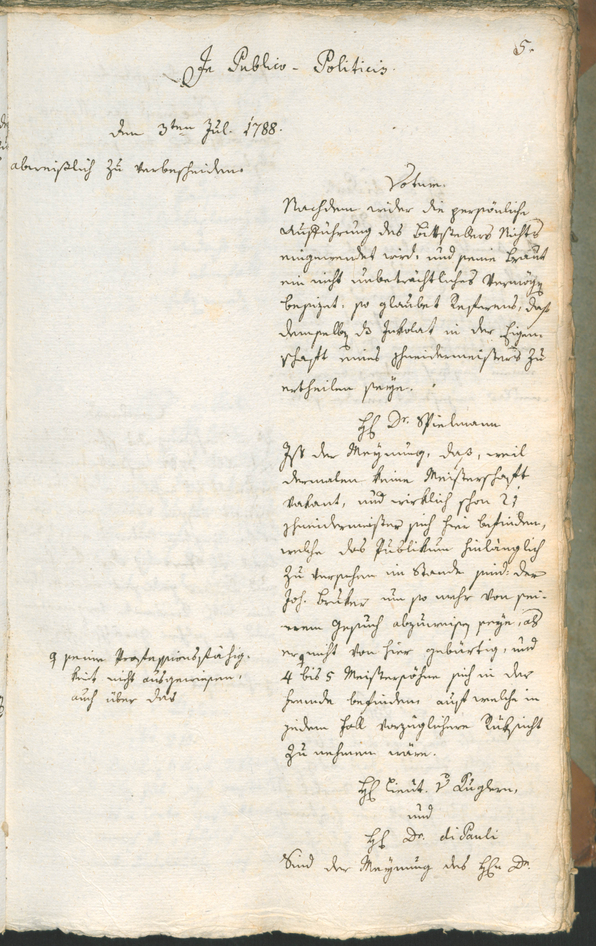 5.
In Publico-Politicis.
den 3ten Jul. 1788.
abweislich zu verbescheiden.
Votum.
Nachdem wider die persönliche
Aufführung des Bittstellers Nichts
eingewendet wird, und seine Braut
ein nicht unbeträchtliches Vermögen
besizet, so glaubet Referens, daß
demselben das Inkolat in der Eigen-
schaft eines Schneidermeisters zu
ertheilen seye.
HE Dr. Spielmann
Ist der Meynung, daß, weil
dermalen keine Meisterschaft
vakant, und wirklich schon 21
Schneidermeister sich hier befinden,
welche das Publikum hinlänglich
zu versehen im Stande sind: der
Joh. Bruker um so mehr von sei-
nem Gesuch abzuweisen seye, als
er nicht von hier gebürtig, und
φ seine Professionsfähig-
keit nicht ausgewiesen,
auch über das
4 bis 5 Meistersöhne sich in der
Fremde befinden, auf welche in
jedem Fall vorzüglichere Rüksicht
zu nehmen wäre.
HE Lieut. v Kuglern,
und
HE Dr. diPauli
Sind der Meynung des HEn Dr.